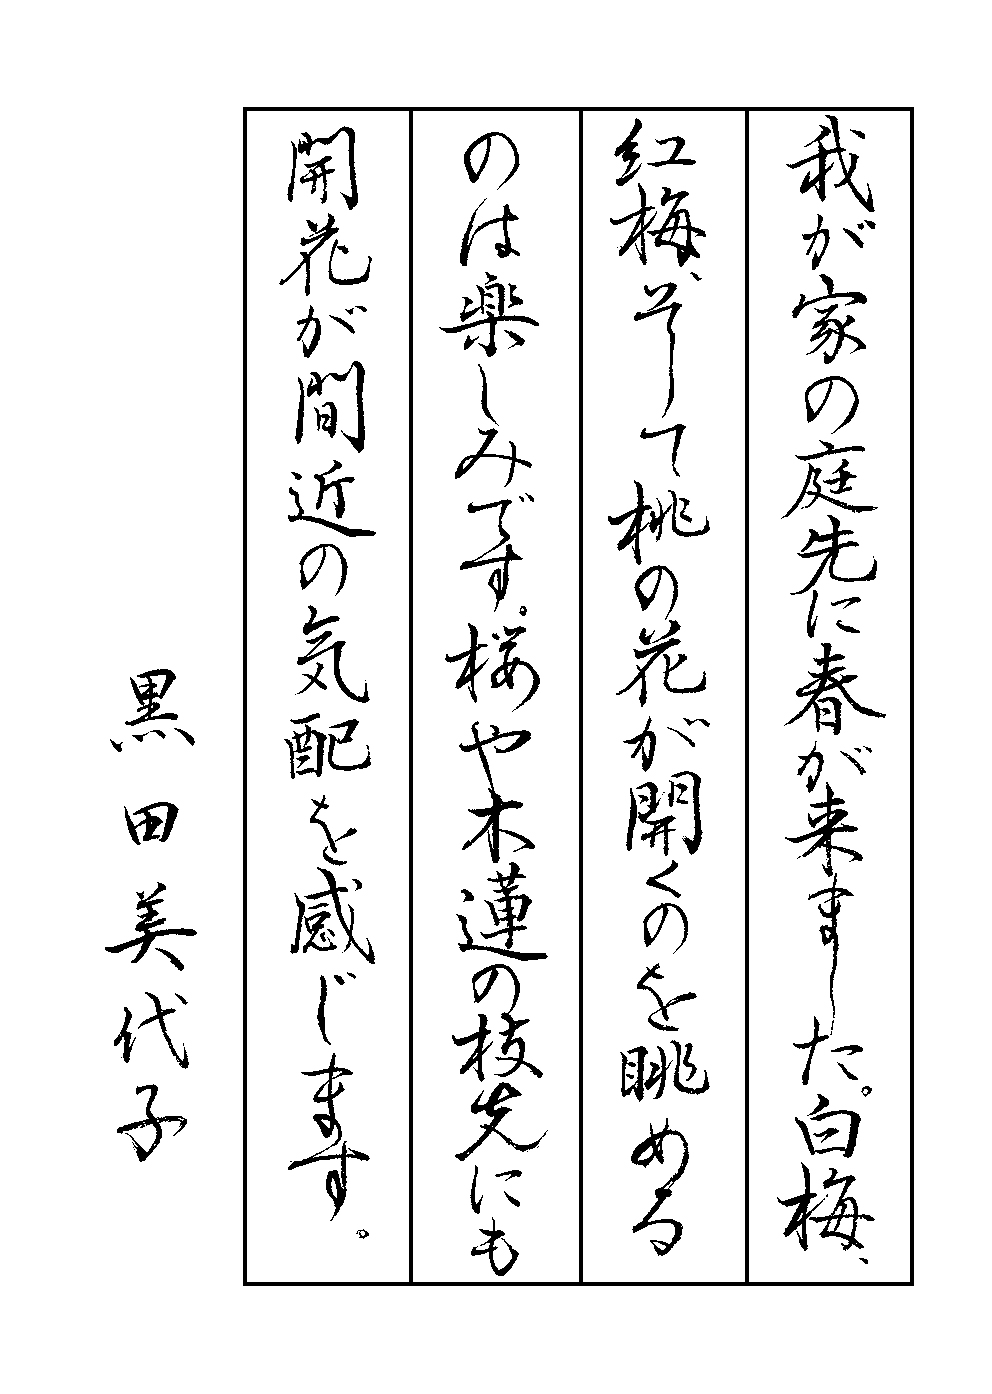 我が家の庭先に春が来ました。白梅、
紅梅、そして桃の花が開くのを眺める
のは楽しみです。桜や木蓮の枝先にも
開花が間近の気配を感じます。
黒田美代子